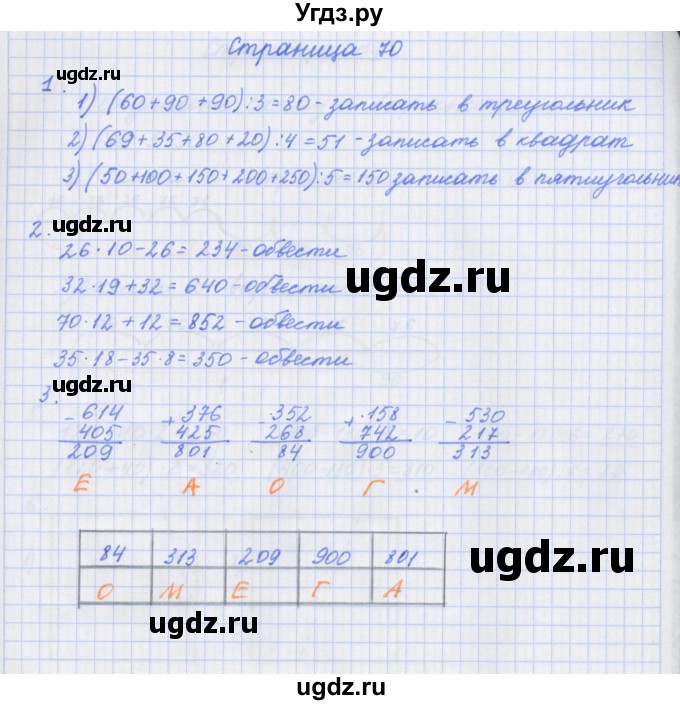 Угдз.ру
Страница 70
ugdz.ru
1.
1) (60+90+90):3=80 - записать в треугольник
2) (69+35+80+20):4=51 - записать в квадрат
3) (50+100+150+200+250):5=150 записать в пятиугольник
ugdz.ru
2.
26·10-26=234 - обвести
32·19+32=640 - обвести
ugdz.ru
70·12+12=852 - обвести
35·18-35·8=350 - обвести
ugdz.ru
3.
-614 +376 -352 +158 -530
405 425 268 742 217
209 801 84 900 313
Е А О Г М
84 313 209 900 801
ugdz.ru
О М Е Г А
ugdz.ru
ugdz.ru
ugdz.ru